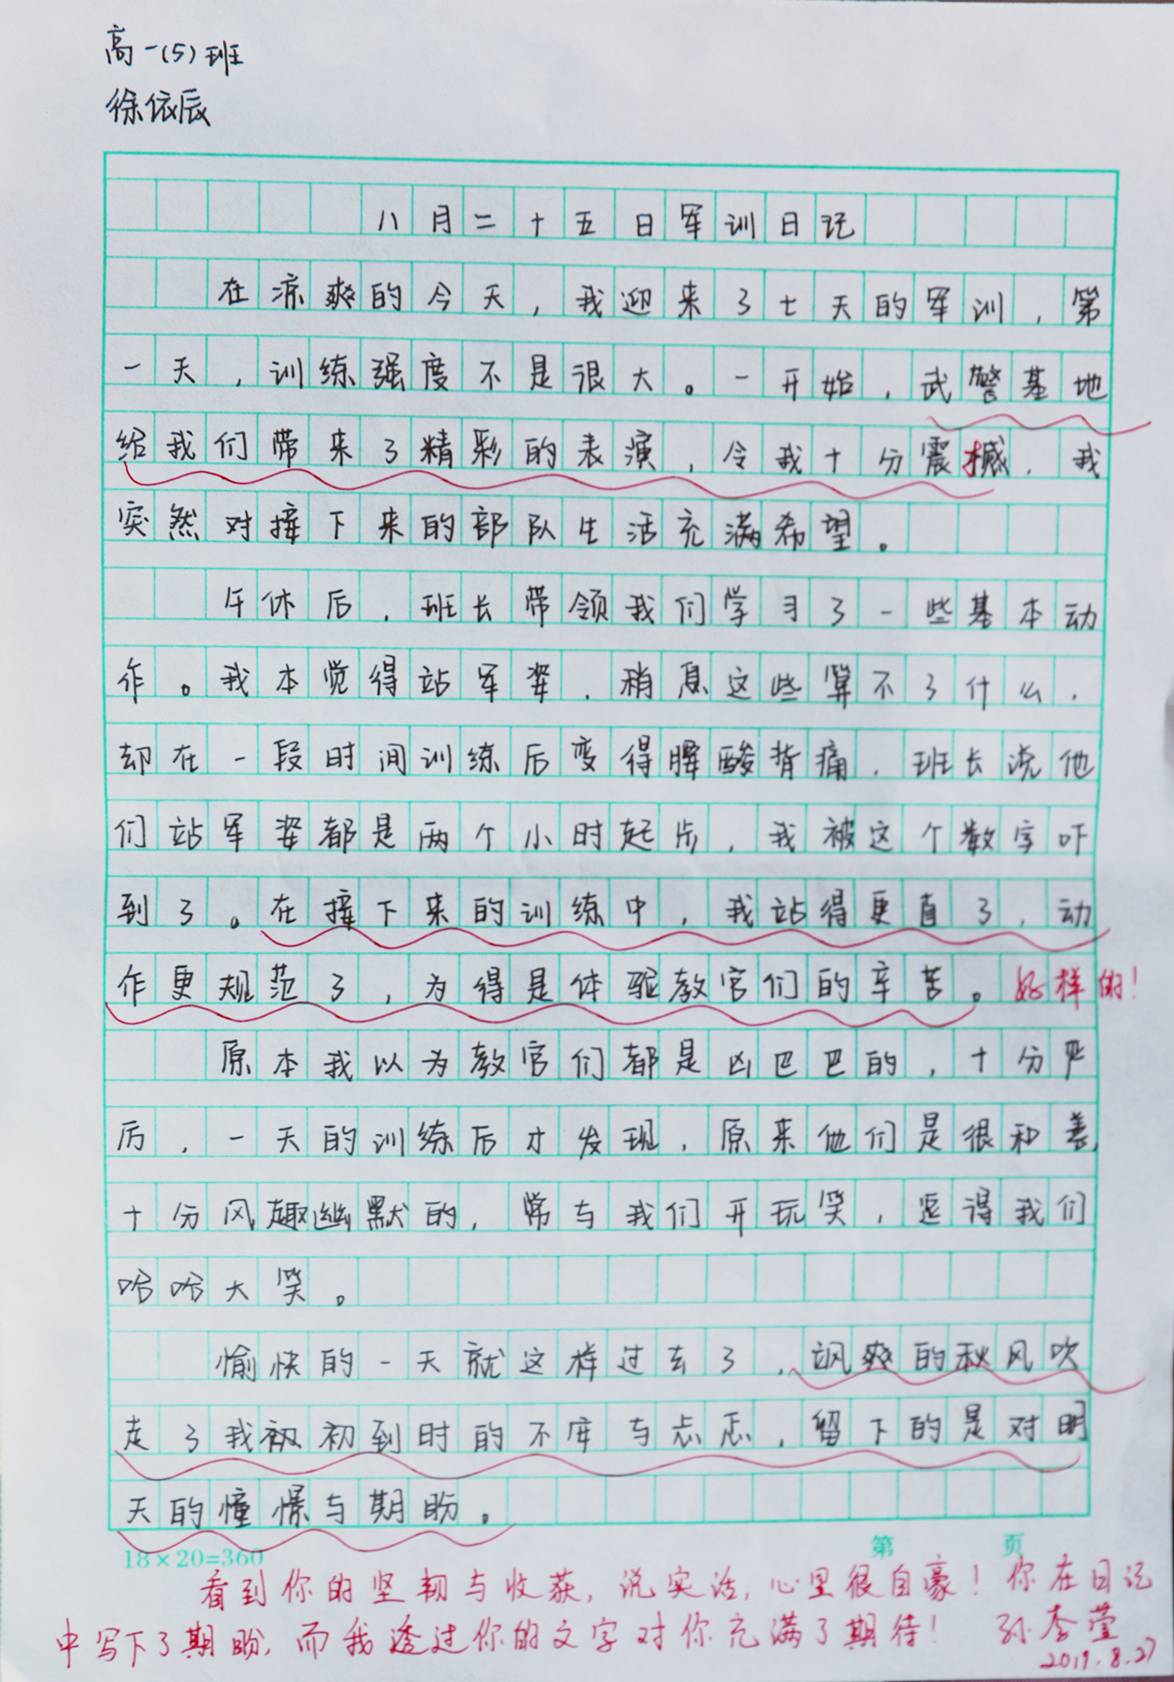 高一(5)班
徐依辰
八月二十五日军训日记
在凉爽的今天，我迎来了七天的军训，第
一天，训练强度不是很大。一开始，武警基地
给我们带来了精彩的表演，令我十分震撼，我
突然对接下来的部队生活充满希望。
午休后，班长带领我们学习了一些基本动
作。我本觉得站军姿，稍息这些算不了什么，
却在一段时间训练后变得腰酸背痛，班长说他
们站军姿都是两个小时起步，我被这个数字吓
到了。在接下来的训练中，我站得更直了，动
作更规范了，为得是体验教官们的辛苦。好样的！
原本我以为教官们都是凶巴巴的，十分严
厉，一天的训练后才发现，原来他们是很和善，
十分风趣幽默的，常与我们开玩笑，逗得我们
哈哈大笑。
愉快的一天就这样过去了，飒爽的秋风吹
走了我初初到时的不库与忐忑，留下的是对明
天的憧憬与期盼。
18×20=360 第 页
看到你的坚韧与收获，说实话，心里很自豪！你在日记
中写下了期盼，而我透过你的文字对你充满了期待！ 孙李莹
2019.8.27